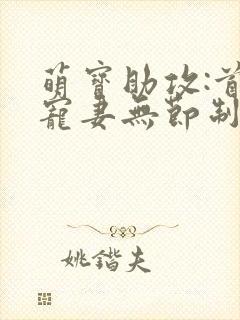 萌寶助攻:首
寵妻無節制
姚鍇夫